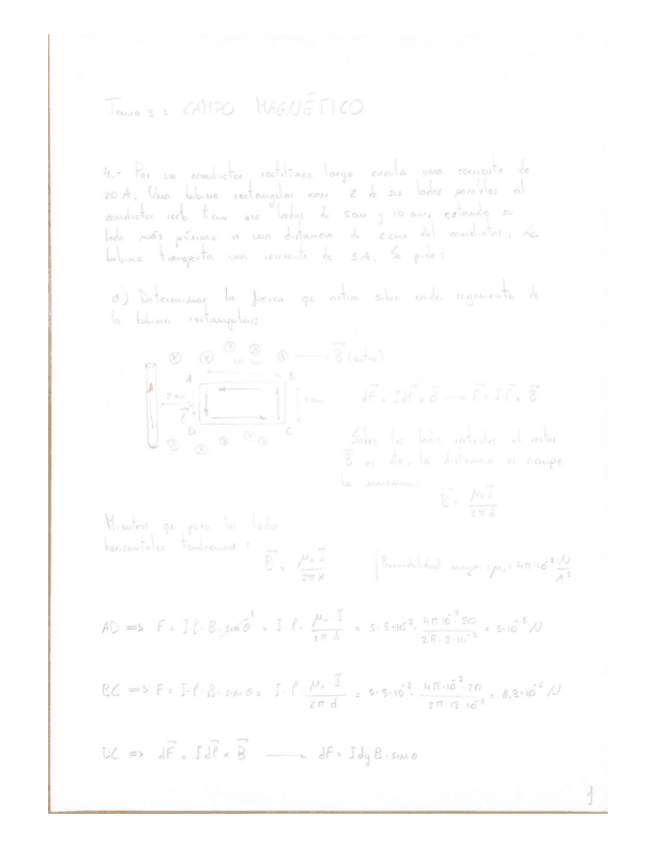 Tema 3: CAMPO MAGNÉTICO
4.- Por un conductor rectilíneo largo circula una corriente de
20 A. Una bobina rectangular con 2 de sus lados paralelos al
conductor recto tiene sus lados de 5 cm y 10 cm, estando su
lado más próximo a una distancia de 2 cm del conductor. La
bobina transporta una corriente de 5 A. Se pide:
a) Determinar la fuerza qe actua sobre cada segmento de
la bobina rectangular:
B (entra)
A B
D C
dF = I dl × B → F = I l × B
Sobre los lados verticales el vector
B es cte, la distancia es siempre
la misma:
B = μ₀ I / 2π d
Mientras qe para los lados
horizontales tendremos:
B = μ₀ I / 2π x
Permeabilidad magn.: μ₀ = 4π·10⁻⁷ N/A²
AD => F = I·l·B·sin θ = I·l· μ₀·I / 2π d = 5·5·10⁻²· 4π·10⁻⁷·20 / 2π·2·10⁻² = 5·10⁻⁵ N
BC => F = I·l·B·sin θ = I·l· μ₀·I / 2π d = 5·5·10⁻²· 4π·10⁻⁷·20 / 2π·12·10⁻² = 8,3·10⁻⁶ N
DC => dF = I dl × B → dF = I dy B·sin θ
1